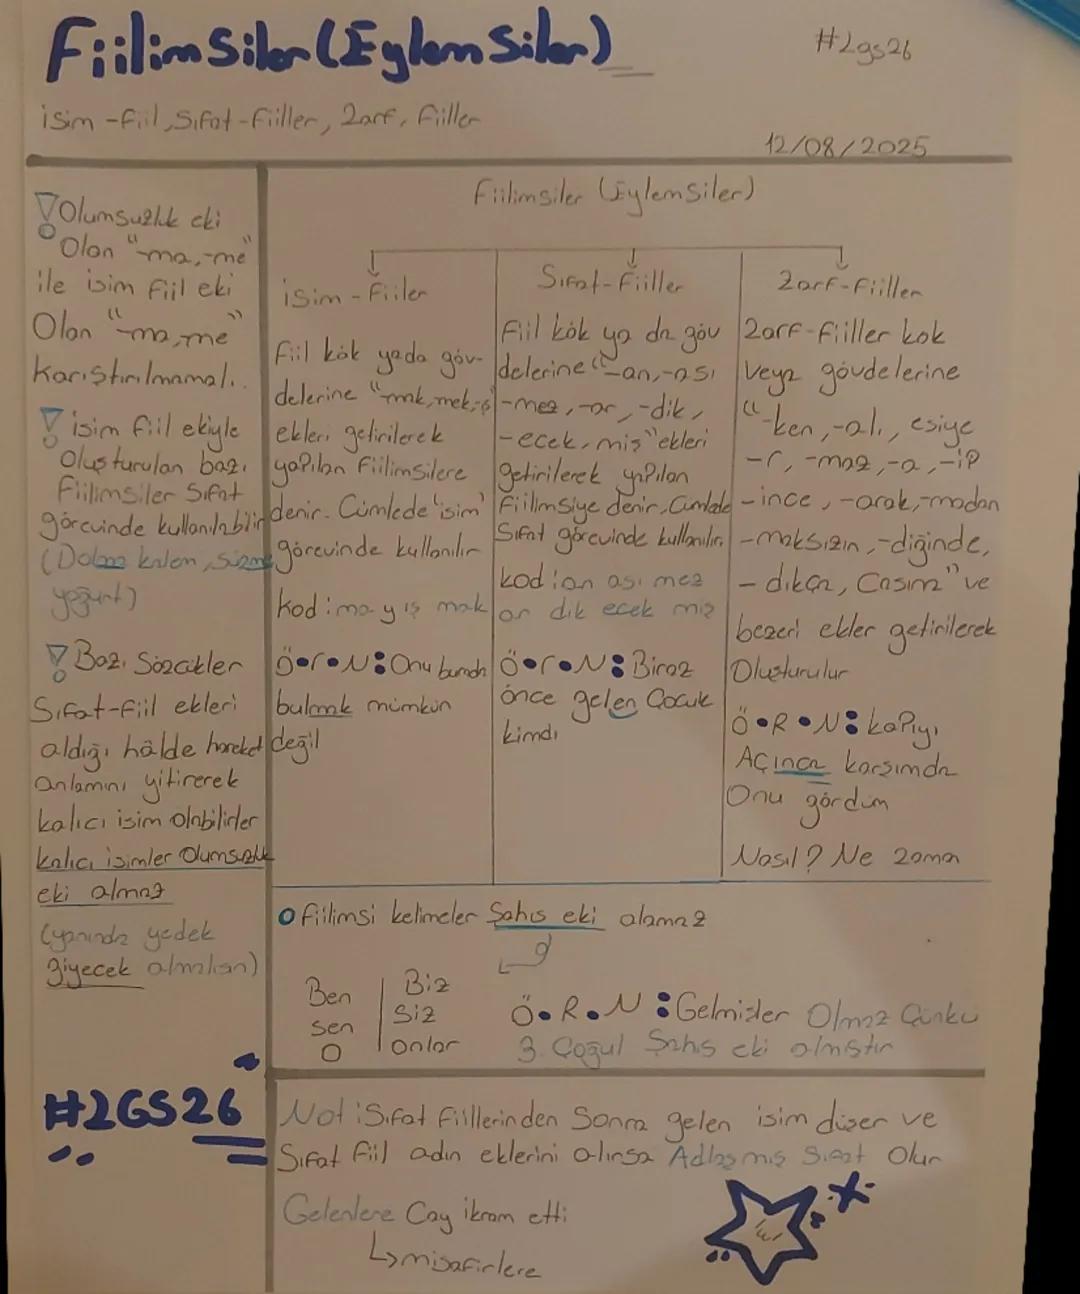 Fiilimsiler (Eylemsiler)
#2gs26
isim-fiil, Sıfat-fiiller, Zarf, fiiller
12/08/2025
Olumsuzluk eki
Olan "-ma,-me"
ile isim fiil eki
Olan "-ma,me"
karıştırılmamalı..
isim fiil ekiyle
Oluşturulan bazı
Fiilimsiler Sıfat
görevinde kullanılabilir
(Dolma kalem, Süzme
yoğurt)
Bazı Sözcükler
Sıfat-fiil ekleri
aldığı hâlde hareket
anlamını yitirerek
kalıcı isim olabilirler
kalıcı isimler Olumsuzluk
eki almaz
(yanında yedek
giyecek almalısın)
#2GS26
Fiilimsiler (Eylemsiler)
isim-Fiiler
Fiil kök yada göv-
delerine "-mak,mek,-ş
ekleri getirilerek
yapılan Fiilimsilere
denir. Cümlede "isim"
görevinde kullanılır
kod:ma y ış mak
Ö•r•N: Onu burdan
bulmak mümkün
değil
Sıfat-fiiller
Fiil kök ya da göv
delerine "-an,-ası
-mez,-ar,-dik,
-ecek, miş" ekleri
getirilerek yapılan
Fiilimsiye denir. Cümlede
Sıfat görevinde kullanılır.
kod:an ası mez
ar dik ecek miş
Ö•r•N: Biraz
önce gelen Çocuk
kimdi
Zarf-fiiller
Zarf-fiiller kok
veya gövdelerine
"-ken,-alı, esiye
-r,-maz,-a,-ip
-ince,-arak,-madan
-maksızın,-diğinde,
-dıkça, Casına" ve
bezeri ekler getirilerek
Oluşturulur
Ö•R•N: kapıyı
Açınca karşımda
Onu gördüm
Nasıl? Ne zaman
Fiilimsi kelimeler Şahıs eki alamaz
Ben Biz
Sen Siz
O Onlar
Ö•R•N: Gelmişler Olmaz Çünkü
3. Çoğul Şahıs eki almıştır
Not:Sıfat Fiillerinden Sonra gelen isim düşer ve
Sıfat fiil adın eklerini alırsa Adlaşmış Sıfat Olur
Gelenlere Çay ikram etti
misafirlere